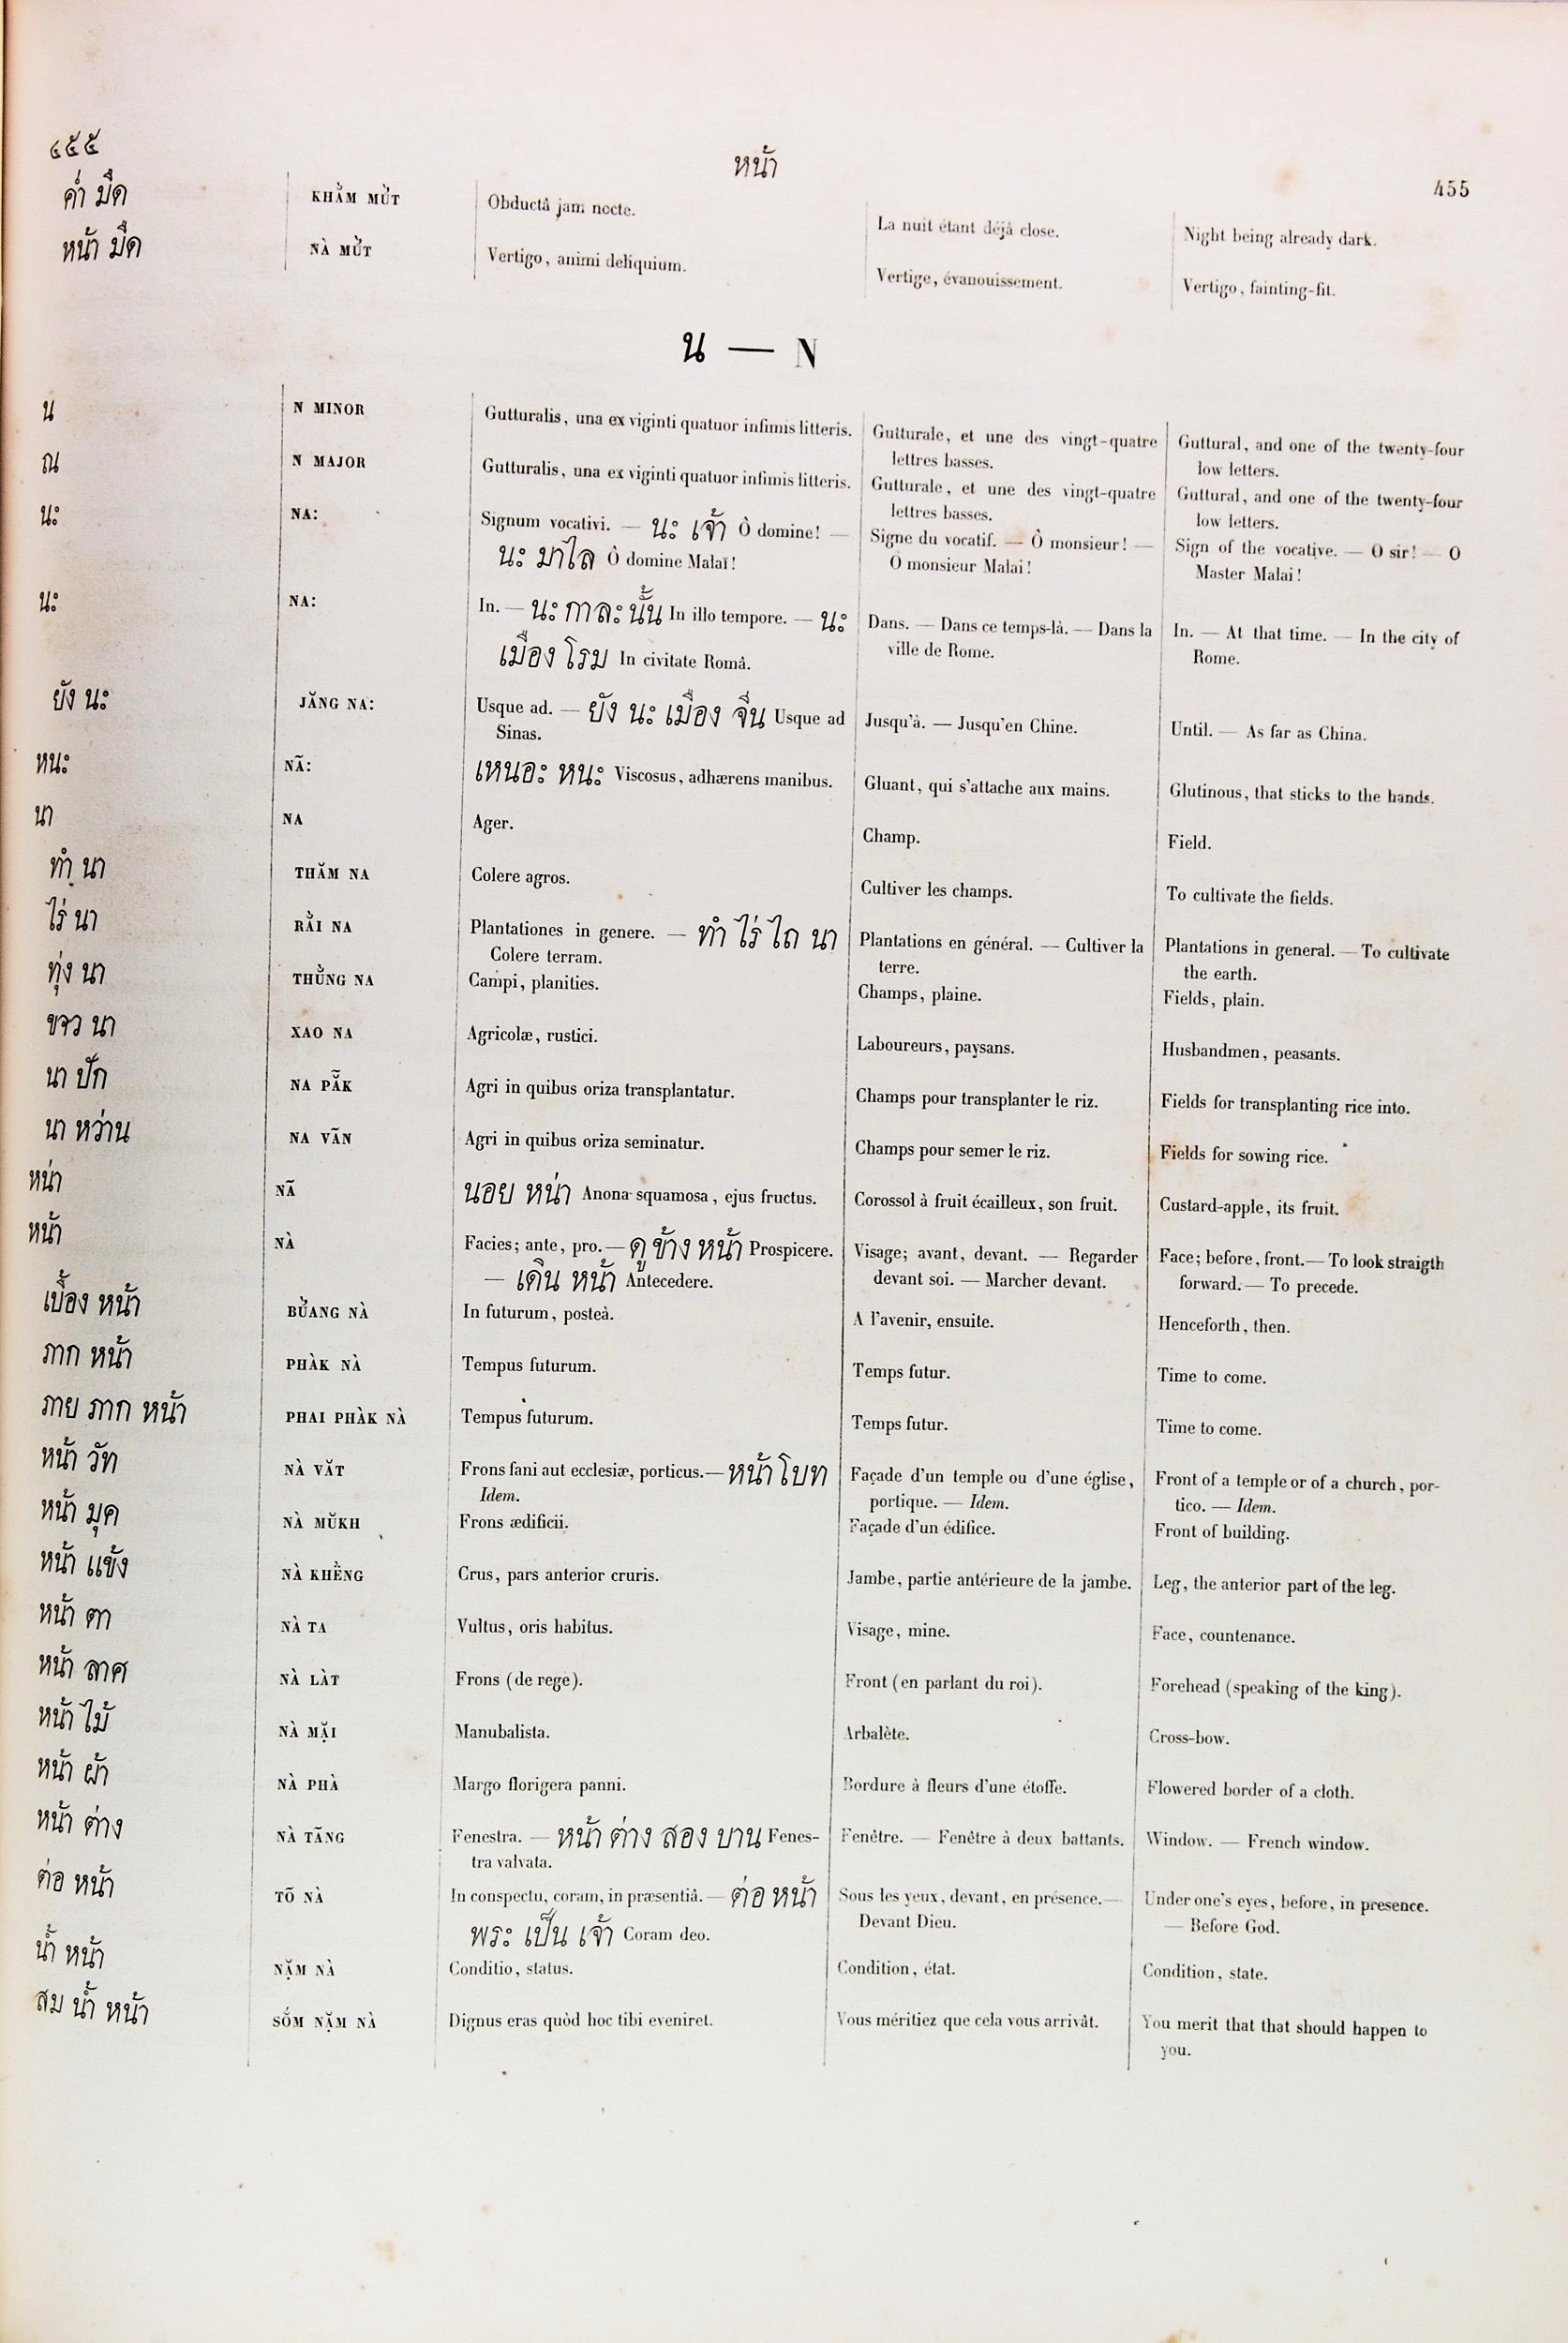 ๔๕๕
หน้า
455
ค่ำ มืด KHẰM MỦT Obductâ jam nocte. La nuit étant déjà close. Night being already dark.
หน้า มืด NÀ MỦT Vertigo, animi deliquium. Vertige, évanouissement. Vertigo, fainting-fit.
น — N
น N MINOR Gutturalis, una ex viginti quatuor infimis litteris. Gutturale, et une des vingt-quatre Guttural, and one of the twenty-four
lettres basses. low letters.
ณ N MAJOR Gutturalis, una ex viginti quatuor infimis litteris. Gutturale, et une des vingt-quatre Guttural, and one of the twenty-four
lettres basses. low letters.
นะ NA: Signum vocativi. — นะ เจ้า Ô domine! — Signe du vocatif. — Ô monsieur! — Sign of the vocative. — O sir! — O
นะ มาไล Ô domine Malaï! O monsieur Malai! Master Malai!
นะ NA: In. — นะ กาละ นั้น In illo tempore. — นะ Dans. — Dans ce temps-là. — Dans la In. — At that time. — In the city of
เมือง โรม In civitate Româ. ville de Rome. Rome.
ยัง นะ JĂNG NA: Usque ad. — ยัง นะ เมือง จีน Usque ad Jusqu'à. — Jusqu'en Chine. Until. — As far as China.
Sinas.
หนะ NÃ: เหนอะ หนะ Viscosus, adhærens manibus. Gluant, qui s'attache aux mains. Glutinous, that sticks to the hands.
นา NA Ager. Champ. Field.
ทำ นา THĂM NA Colere agros. Cultiver les champs. To cultivate the fields.
ไร่ นา RẰI NA Plantationes in genere. — ทำ ไร่ ไถ นา Plantations en général. — Cultiver la Plantations in general. — To cultivate
Colere terram. terre. the earth.
ทุ่ง นา THŬ̀NG NA Campi, planities. Champs, plaine. Fields, plain.
ชาว นา XAO NA Agricolæ, rustici. Laboureurs, paysans. Husbandmen, peasants.
นา ปัก NA PẴK Agri in quibus oriza transplantatur. Champs pour transplanter le riz. Fields for transplanting rice into.
นา หว่าน NA VÃN Agri in quibus oriza seminatur. Champs pour semer le riz. Fields for sowing rice.
หน่า NÃ นอย หน่า Anona squamosa, ejus fructus. Corossol à fruit écailleux, son fruit. Custard-apple, its fruit.
หน้า NÀ Facies; ante, pro. — ดู ข้าง หน้า Prospicere. Visage; avant, devant. — Regarder Face; before, front. — To look straigth
— เดิน หน้า Antecedere. devant soi. — Marcher devant. forward. — To precede.
เบื้อง หน้า BỦANG NÀ In futurum, posteà. A l'avenir, ensuite. Henceforth, then.
ภาก หน้า PHÀK NÀ Tempus futurum. Temps futur. Time to come.
ภาย ภาก หน้า PHAI PHÀK NÀ Tempus futurum. Temps futur. Time to come.
หน้า วัท NÀ VĂT Frons fani aut ecclesiæ, porticus. — หน้า โบท Façade d'un temple ou d'une église, Front of a temple or of a church, por-
Idem. portique. — Idem. tico. — Idem.
หน้า มุค NÀ MŬKH Frons ædificii. Façade d'un édifice. Front of building.
หน้า แข้ง NÀ KHỀNG Crus, pars anterior cruris. Jambe, partie antérieure de la jambe. Leg, the anterior part of the leg.
หน้า ตา NÀ TA Vultus, oris habitus. Visage, mine. Face, countenance.
หน้า ลาศ NÀ LÀT Frons (de rege). Front (en parlant du roi). Forehead (speaking of the king).
หน้า ไม้ NÀ MẶI Manubalista. Arbalète. Cross-bow.
หน้า ผ้า NÀ PHÀ Margo florigera panni. Bordure à fleurs d'une étoffe. Flowered border of a cloth.
หน้า ต่าง NÀ TÃNG Fenestra. — หน้า ต่าง สอง บาน Fenes- Fenêtre. — Fenêtre à deux battants. Window. — French window.
tra valvata.
ต่อ หน้า TÕ NÀ In conspectu, coram, in præsentiâ. — ต่อ หน้า Sous les yeux, devant, en présence. — Under one's eyes, before, in presence.
พระ เป็น เจ้า Coram deo. Devant Dieu. — Before God.
น้ำ หน้า NẶM NÀ Conditio, status. Condition, état. Condition, state.
สม น้ำ หน้า SỔM NẶM NÀ Dignus eras quòd hoc tibi eveniret. Vous méritiez que cela vous arrivât. You merit that that should happen to
you.